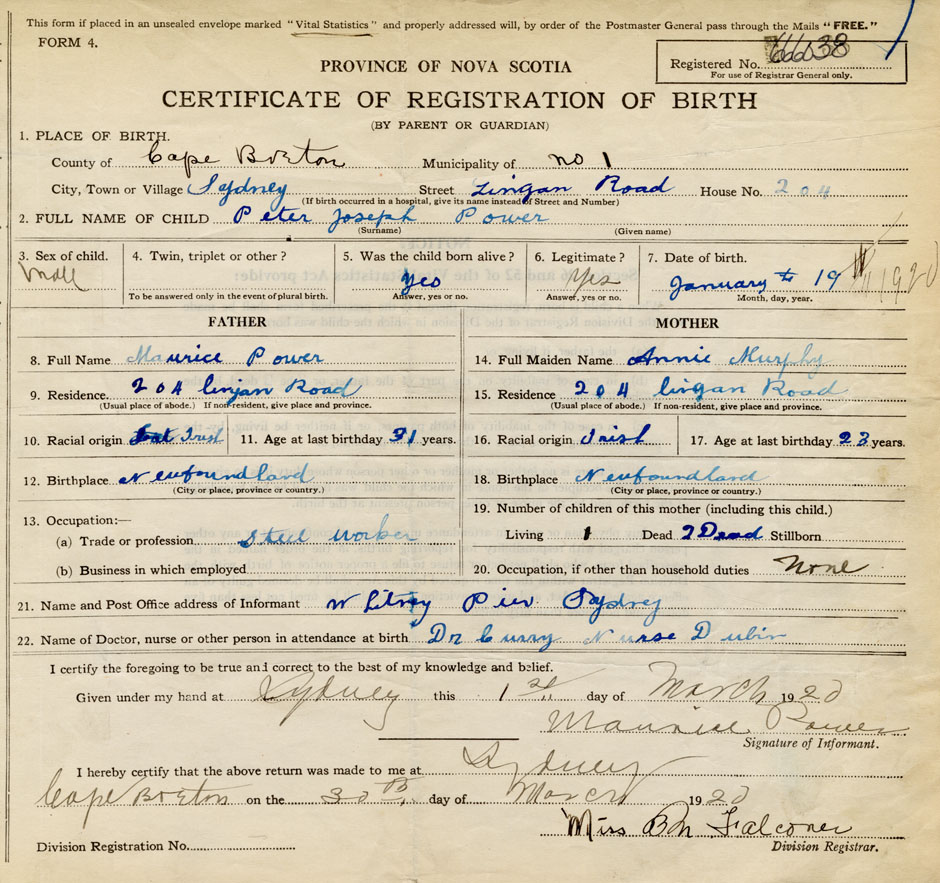 This form if placed in an unsealed envelope marked "Vital Statistics" and properly addressed will, by order of the Postmaster General pass through the Mails "FREE."
FORM 4.
Registered No. 666038
For use of Registrar General only.
PROVINCE OF NOVA SCOTIA
CERTIFICATE OF REGISTRATION OF BIRTH
(BY PARENT OR GUARDIAN)
1. PLACE OF BIRTH.
County of Cape Breton Municipality of no 1
City, Town or Village Sydney Street Lingan Road House No. 204
(If birth occurred in a hospital, give its name instead of Street and Number)
2. FULL NAME OF CHILD Peter Joseph Power
(Surname) (Given name)
3. Sex of child. 4. Twin, triplet or other? 5. Was the child born alive? 6. Legitimate? 7. Date of birth.
Male Yes Yes January 19 1920
To be answered only in the event of plural birth. Answer, yes or no. Answer, yes or no. Month, day, year.
FATHER MOTHER
8. Full Name Maurice Power 14. Full Maiden Name Annie Murphy
9. Residence. 204 linjan Road 15. Residence 204 lingan Road
(Usual place of abode.) If non-resident, give place and province. (Usual place of abode.) If non-resident, give place and province.
10. Racial origin Irish 11. Age at last birthday 31 years. 16. Racial origin Irish 17. Age at last birthday 23 years.
12. Birthplace Newfoundland 18. Birthplace Newfoundland
(City or place, province or country.) (City or place, province or country.)
13. Occupation:— 19. Number of children of this mother (including this child.)
(a) Trade or profession Steel worker Living 1 Dead 2 Dead Stillborn
(b) Business in which employed 20. Occupation, if other than household duties None
21. Name and Post Office address of Informant Whitney Pier Sydney
22. Name of Doctor, nurse or other person in attendance at birth Dr Curry Nurse Dubin
I certify the foregoing to be true and correct to the best of my knowledge and belief.
Given under my hand at Sydney this 1st day of March 1920
Maurice Power
Signature of Informant.
I hereby certify that the above return was made to me at Sydney
Cape Breton on the 30th day of March 1920
Miss B M Falconer
Division Registration No. Division Registrar.